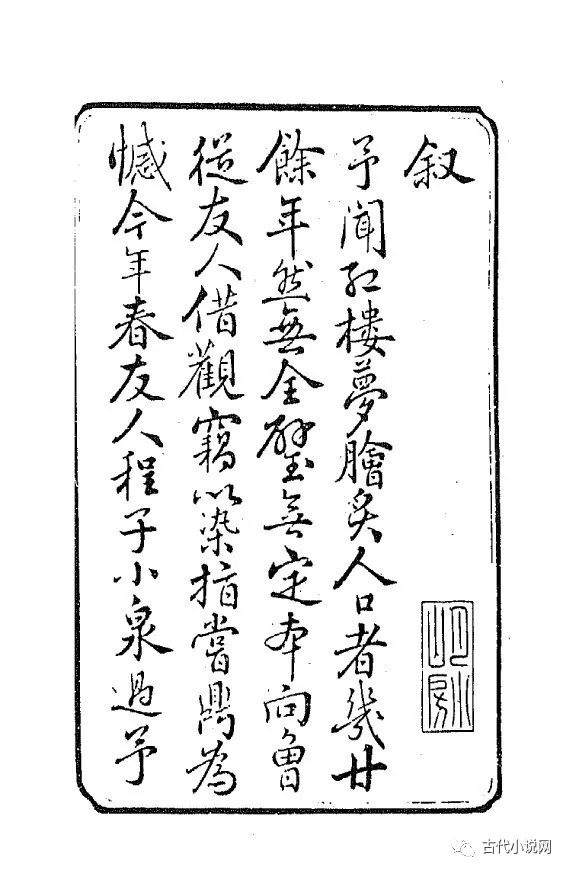 叙
予聞紅樓夢膾炙人口者幾廿
餘年然無全璧無定本向曾
從友人借觀竊以染指嘗鼎為
憾今年春友人程子小泉過予
古代小说网